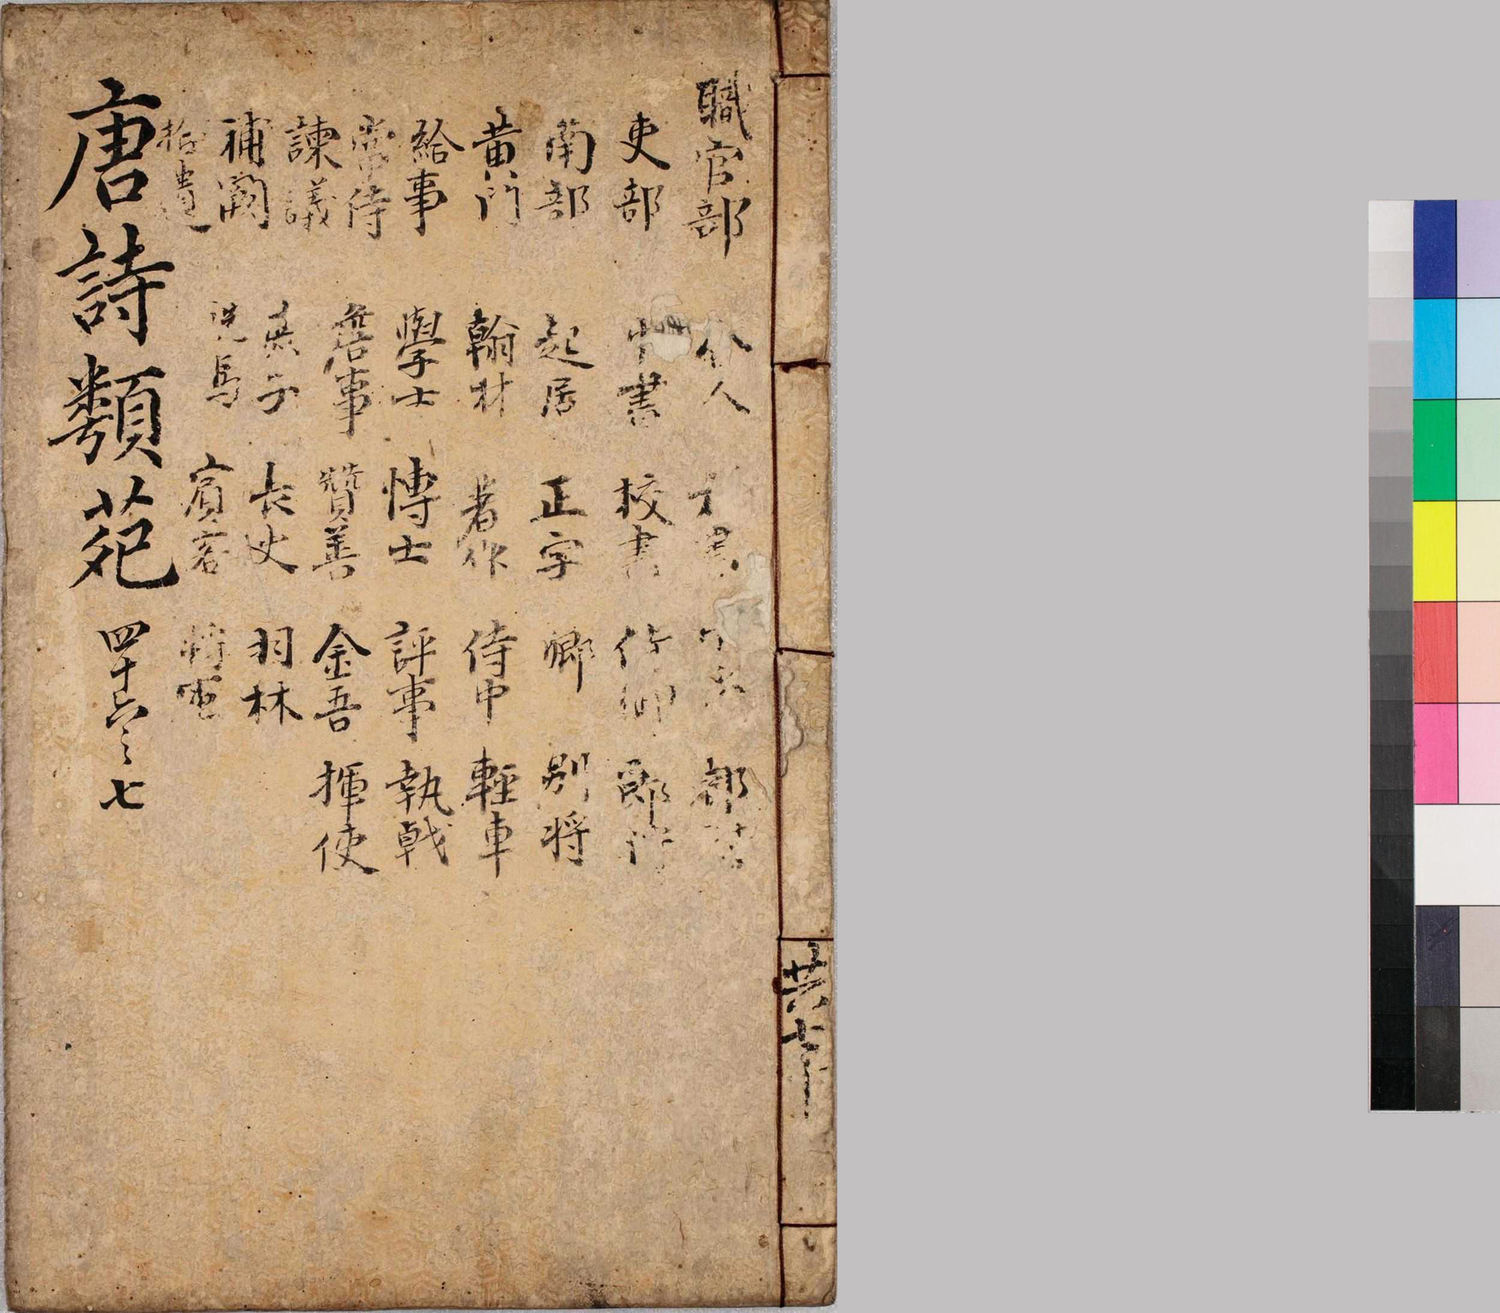 職官部
吏部
南部
黄門
給事
常侍
諫議
補闕
拾遺
舍人
中書
起居
翰林
學士
詹事
庶子
洗馬
校書
正字
著作
博士
贊善
長史
賓客
卿
侍中
評事
金吾
羽林
將軍
別将
輕車
執戟
揮使
唐詩類苑
四十六之七
共七十